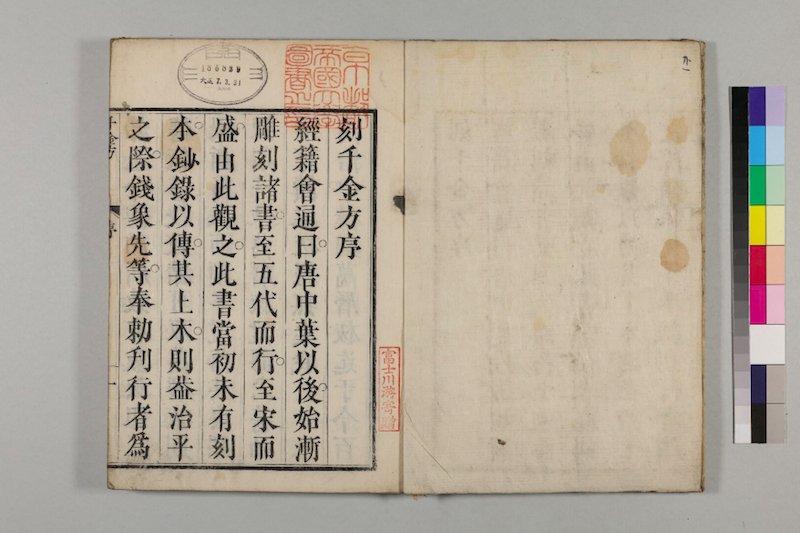 刻千金方序
經籍會通曰唐中葉以後始漸
雕刻諸書至五代而行至宋而
盛由此觀之此書當初未有刻
本鈔錄以傳其上木則葢治平
之際錢象先等奉勅刋行者爲
序
京都帝國大學圖書之印
富士川游寄贈
186829
大正7.3.31